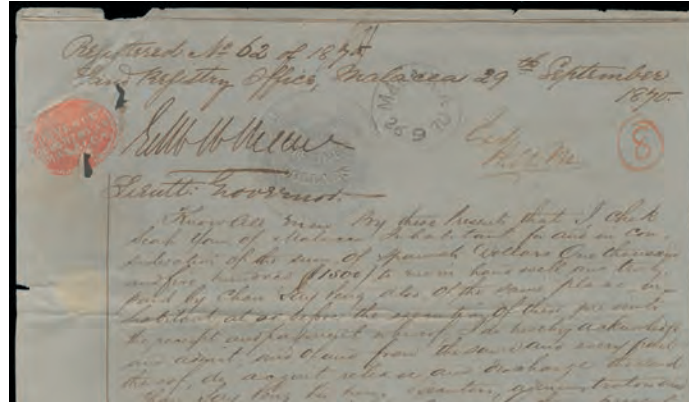 Registered No 62 of 1870
Land Registry Office, Malacca 29th September
1870.
8
Lieutt. Governor.
Know All Men By these Presents that I Chek
of Malacca Inhabitant for and in con-
sideration of the sum of Spanish Dollars One thousand
and five hundred ($1500) to me in hand well and truly
paid by Chan also of the same place in-
habitant at or before the execution of these presents
the receipt and payment whereof I do hereby acknowledge
and acquit and of and from the same and every part
thereof, do acquit release and discharge the said